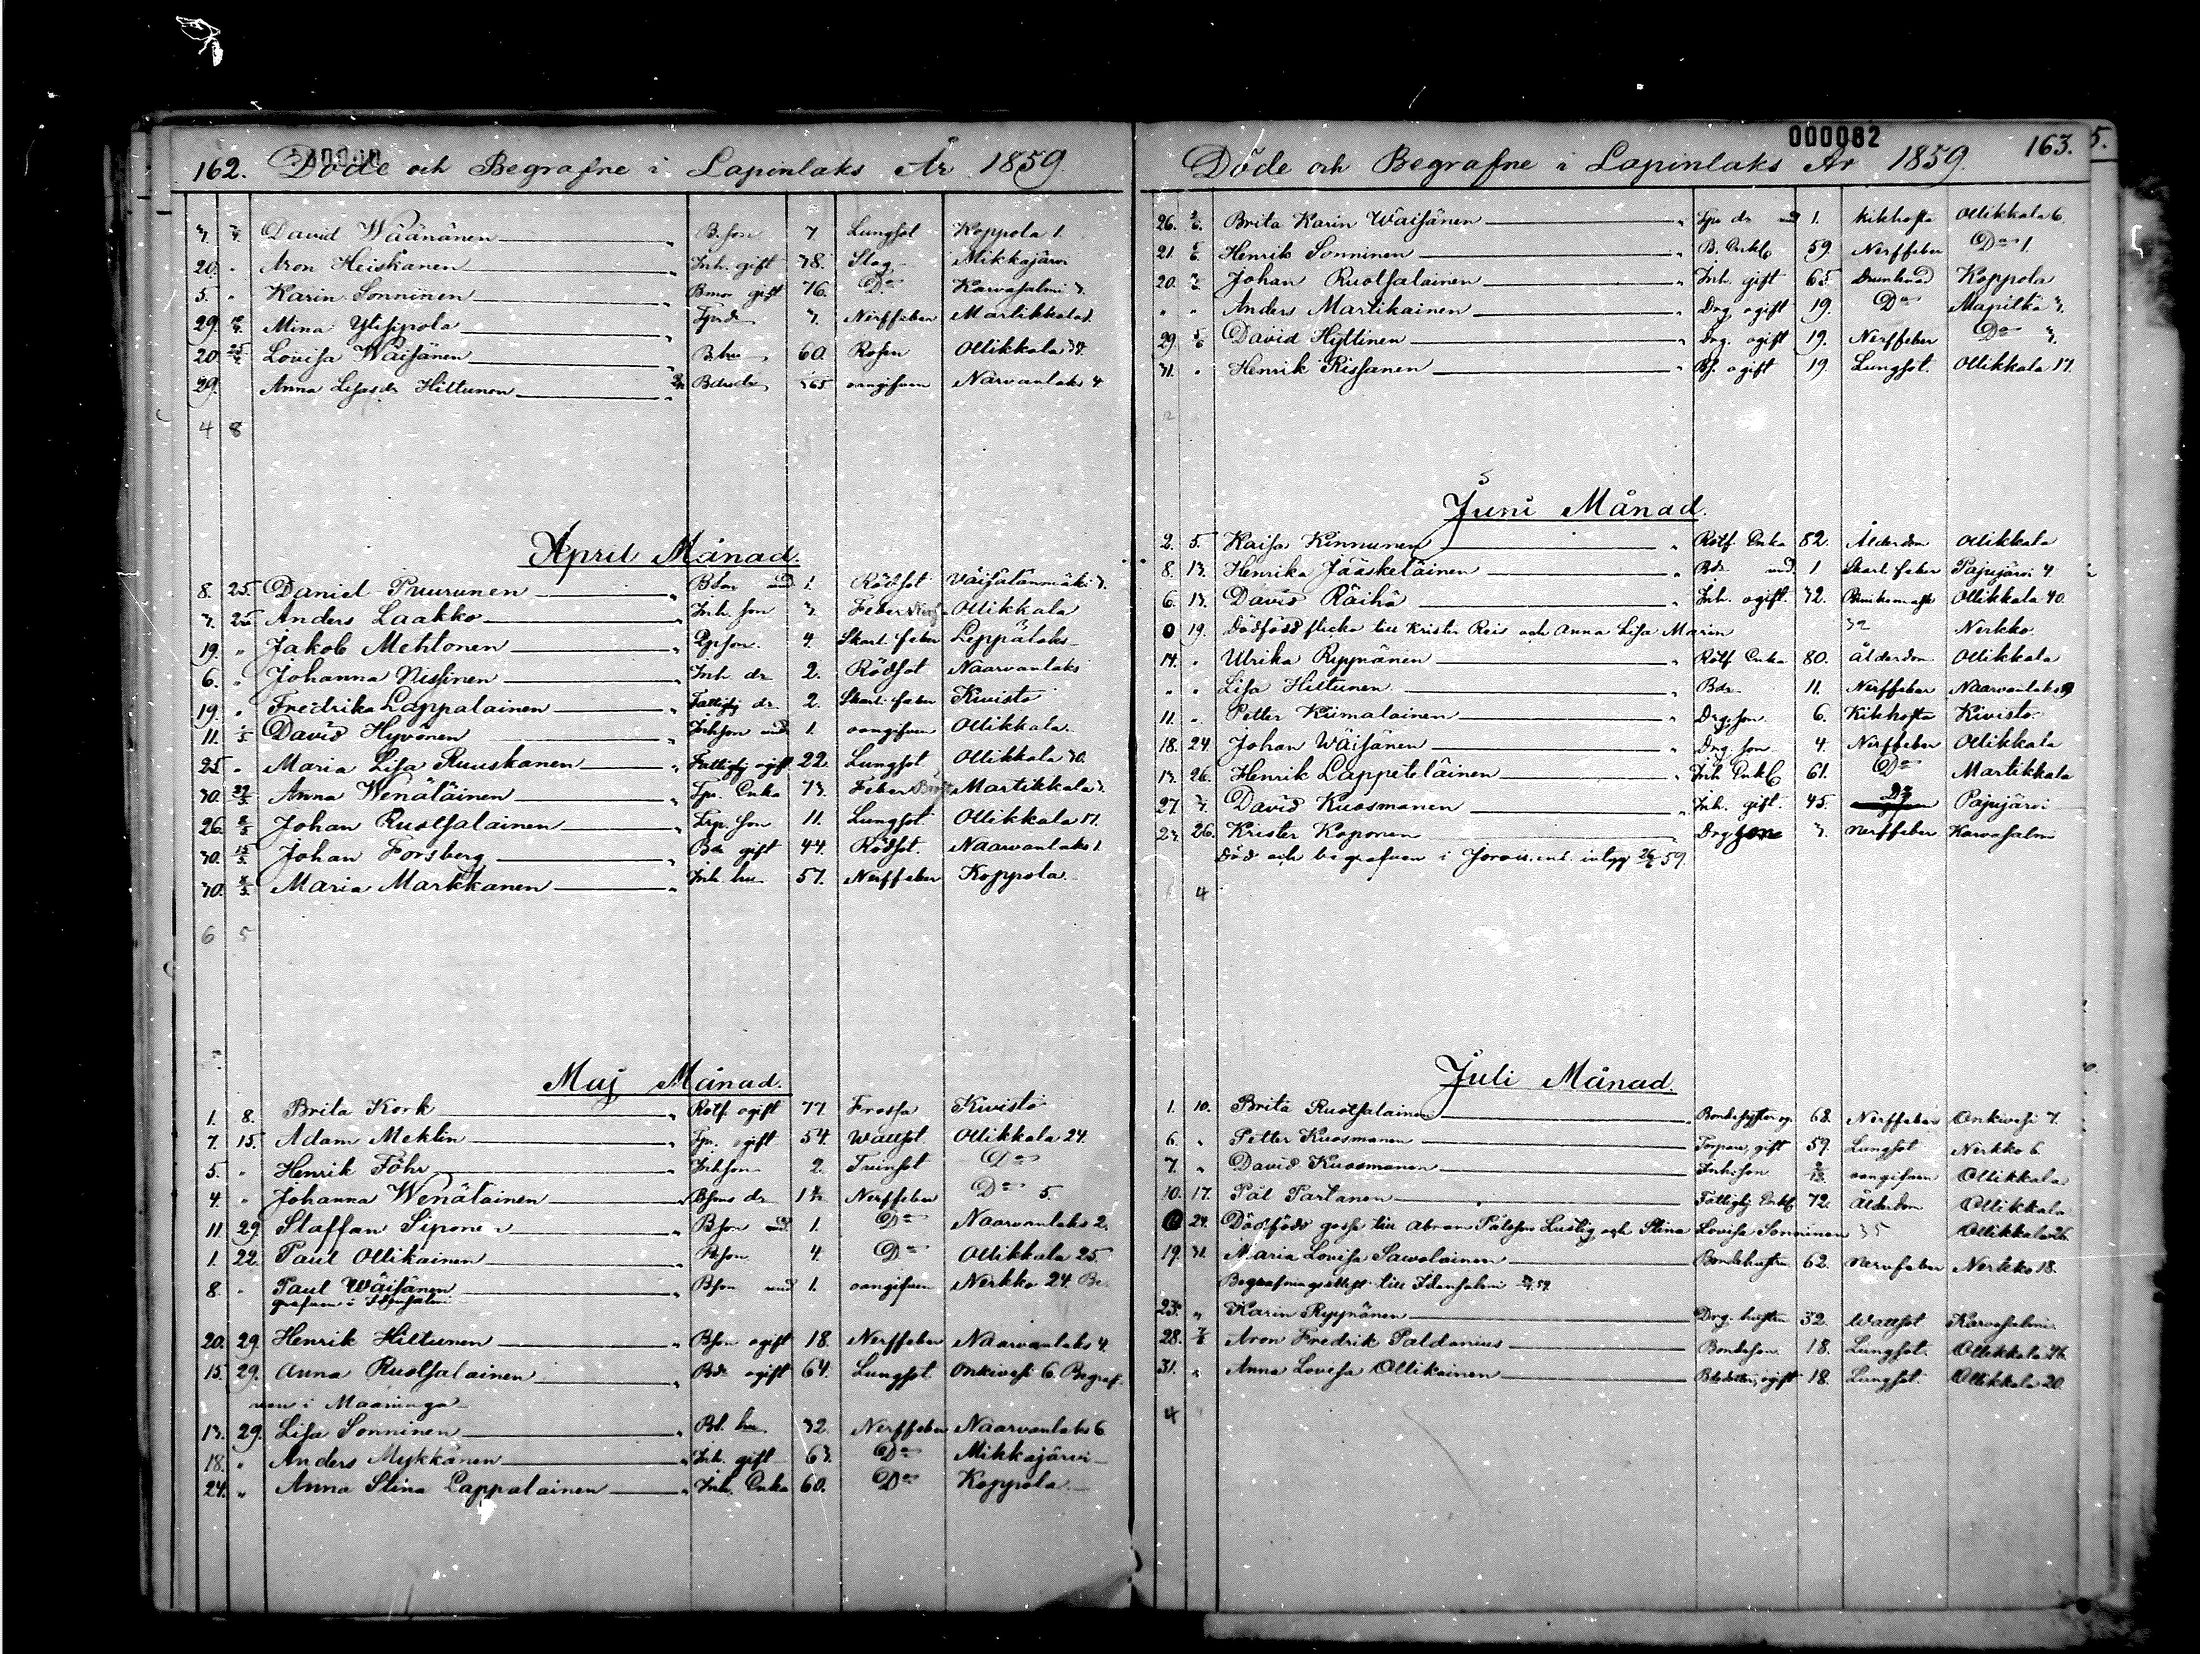 162. Döde och Begrafne i Lapinlaks År 1859.
David Wäänänen B. son 7. Lungsot Koppola 1.
20. " Aron Heiskanen Inh. gift 38. Slag Mikkajärvi
5. " Karin Sonninen gift 76. Do Karvasalmi 3.
29. Mina Ylisipola 3. Nerffeber Martikkala
20. Lovisa Wäisänen B. hu 60. Rosen Ollikkala
29. Anna Lisa Hiltunen oangifven Narvanlaks 4
4 8
April Månad.
8. 25. Daniel Puurunen Bson und 1. Rödsot Väisälänmäki 3.
3. 25 Anders Laakko Inh. son 3. Feber Ollikkala
19. " Jakob Mehtonen son. 4. Skarl. feber Leppälaks
6. " Johanna Nissinen Inh dr 2. Rödsot Naarvanlaks
19. " Fredrika Lappalainen Fattighj dr. 2. Skarl. feber Kivistö
11. 1/5 David Hyvönen Inhson und 1. oangifven Ollikkala.
25 " Maria Lisa Ruuskanen Fattighj ogift 22. Lungsot Ollikkala 30.
30. Anna Wenäläinen Enka 73. Feber Martikkala 3.
26. Johan Ruotsalainen Trp. son 11. Lungsot Ollikkala 17.
30. 15/5 Johan Forsberg gift 44. Rödsot. Naarvanlaks 1.
30. Maria Markkanen Inh. hu 57. Nerffeber Koppola
6 5
Maj Månad.
1. 8. Brita Kork Rotf. ogift 77. Frossa Kivistö
7. 15. Adam Meklin gift 54. Wattsot Ollikkala 24.
5. " Henrik Föhr Inhson 2. Tvinsot Do
4. " Johanna Wenäläinen Bsons dr Nerffeber Do 5.
11 29. Staffan Siponen Bson und. 1. Do Naarvanlaks 2.
1. 22. Paul Ollikainen son 4. Do Ollikkala 25
8. " Paul Wäisänen Bson und 1. oangifven Nerkko 24. Be-
grafven i Idensalmi
20. 29. Henrik Hiltunen Bson ogift 18. Nerffeber Naarvanlaks 4.
15. 29. Anna Ruotsalainen Bdr ogift 64. Lungsot Onkivesi 6. Begraf-
ven i Maaninga
13. 29. Lisa Sonninen hu 32. Nerffeber Naarvanlaks 6
18. " Anders Mykkänen Inh. gift 63. Do Mikkajärvi
24. " Anna Stina Lappalainen Inh. Enka 60. Do Koppola.
000082
163.
5.
Döde och Begrafne i Lapinlaks År 1859.
26. Brita Karin Wäisänen dr und 1. Kikhosta Ollikkala 6.
21. Henrik Sonninen B. Enkl 59. Nerffeber Do 1.
20. Johan Ruotsalainen Inh. gift 65. Drunknad Koppola
" " Anders Martikainen Drg ogift 19. Do 3.
29. 5/6 David Hyttinen Drg. ogift 19. Nerffeber Do 3.
31. " Henrik Rissanen Bs. ogift 19. Lungsot. Ollikkala 17.
Juni Månad.
2. 5. Kaisa Kinnunen Rotf. Enka 82. Ålderdom Ollikkala
8. 13. Henrika Jääskeläinen Bdr und. 1 Skarl. feber Pajujärvi 4.
6. 13. David Räihä Inh. ogift. 32. Ollikkala 40.
0 19. Dödfödd flicka till Krister Reis och Anna Lisa Marin 32 Nerkko.
14. " Ulrika Ryynänen Rotf. Enka 80. Ålderdom Ollikkala
" " Lisa Hiltunen Bdr. 11. Nerffeber Naarvanlaks 9
11. " Petter Kiimalainen Drg. son 6. Kikhosta Kivistö
18. 24. Johan Wäisänen Drg. son 4. Nerffeber Ollikkala
13. 26. Henrik Lappeteläinen Inh Enkl 61. Do Martikkala
27. David Kuosmanen Inh. gift. 45. Do Pajujärvi
23. 26. Krister Koponen Drg son 3. Nerffeber Karvasalmi
Död och begrafven i Jorois, enl. intyg 59.
4
Juli Månad.
1. 10. Brita Ruotsalainen 68. Nerffeber Onkivesi 7.
6. " Petter Kuosmanen Torpare, gift 59. Lungsot Nerkko 6.
7. " David Kuosmanen Inh. son oangifven Ollikkala
10. 17. Pål Partanen Fattighj Enkl 72. Ålderdom Ollikkala
0 24. Dödfödd gosse till Abram Pålsson Lustig och Stina Lovisa Sonninen 35 Ollikkala 26.
19. 31. Maria Lovisa Sawolainen Bondehustru 62. Nervfeber Nerkko 18.
Begrafningsattest till Idensalmi
23. " Karin Ryynänen Drg. hustru 52. Wattsot Karvasalmi.
28. 7/8 Aron Fredrik Paldanius Bondeson 18. Lungsot. Ollikkala 46.
31. " Anna Lovisa Ollikainen ogift 18. Lungsot. Ollikkala 20.
4